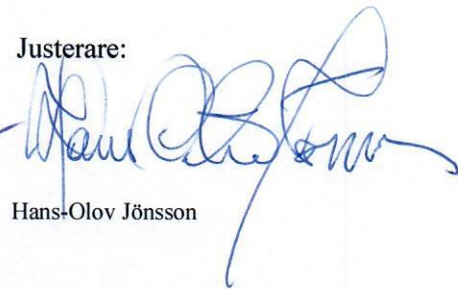 Justerare:
Hans-Olov Jönsson